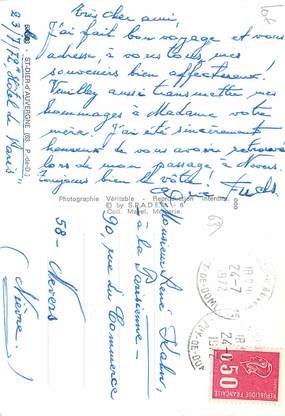 Très cher ami,
J'ai fait bon voyage et vous
adresse à vous tous mes
souvenirs bien affectueux!
Veuillez aussi transmettre mes
hommages à Madame votre
mère. J'ai été sincèrement
heureuse de vous avoir retrouvé
lors de mon passage à Nevers.
Toujours bien à vôtre!
Fuchs
23/7/72 Hôtel de Paris
ST-DIER-d'AUVERGNE (P.-de-D.)
Photographie Véritable - Reproduction Interdite
© by S.P.A.D.E.M.
Monsieur René Kahn,
à la Parisienne
90, rue du Commerce
58 - Nevers
(Nièvre)
24-7
1972
PUY-DE-DOME
0,50
POSTES
REPUBLIQUE FRANÇAISE